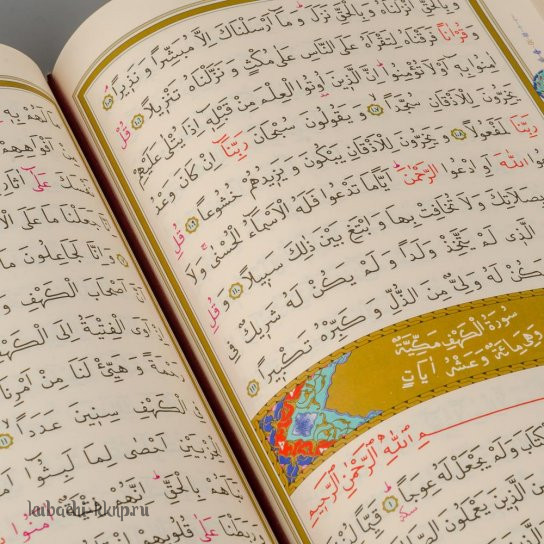 وَبِالْحَقِّ اَنْزَلْنَاهُ وَبِالْحَقِّ نَزَلَ وَمَا اَرْسَلْنَاكَ اِلَّا مُبَشِّرًا وَنَذِيرًا
وَقُرْاٰنًا فَرَقْنَاهُ لِتَقْرَاَهُ عَلَى النَّاسِ عَلٰى مُكْثٍ وَنَزَّلْنَاهُ تَنْزِيلًا قُلْ
اٰمِنُوا بِهِ اَوْ لَا تُؤْمِنُوا اِنَّ الَّذِينَ اُوتُوا الْعِلْمَ مِنْ قَبْلِهِ اِذَا يُتْلٰى عَلَيْهِمْ
يَخِرُّونَ لِلْاَذْقَانِ سُجَّدًا وَيَقُولُونَ سُبْحَانَ رَبِّنَا اِنْ كَانَ وَعْدُ
رَبِّنَا لَمَفْعُولًا وَيَخِرُّونَ لِلْاَذْقَانِ يَبْكُونَ وَيَزِيدُهُمْ خُشُوعًا قُلِ
اللّٰهَ اَوِ ادْعُوا الرَّحْمٰنَ اَيًّا مَا تَدْعُوا فَلَهُ الْاَسْمَاءُ الْحُسْنٰى وَلَا
بِصَلَاتِكَ وَلَا تُخَافِتْ بِهَا وَابْتَغِ بَيْنَ ذٰلِكَ سَبِيلًا وَقُلِ
الَّذِى لَمْ يَتَّخِذْ وَلَدًا وَلَمْ يَكُنْ لَهُ شَرِيكٌ فِى
يَكُنْ لَهُ وَلِىٌّ مِنَ الذُّلِّ وَكَبِّرْهُ تَكْبِيرًا
سُورَةُ الْكَهْفِ مَكِّيَّةٌ
وَهِىَ مِائَةٌ وَعَشْرُ اٰيَاتٍ
اللّٰهِ الرَّحْمٰنِ الرَّحِيمِ
الْكِتَابَ وَلَمْ يَجْعَلْ لَهُ عِوَجًا قَيِّمًا
الَّذِينَ يَعْمَلُونَ
مَا لَهُمْ بِهِ
مِنْ اَفْوَاهِهِمْ
نَفْسَكَ عَلٰى اٰثَارِ
جَعَلْنَا مَا عَلَى
وَاِنَّا لَجَاعِلُونَ مَا
اَنَّ اَصْحَابَ الْكَهْفِ وَ
اَوَى الْفِتْيَةُ اِلَى الْكَهْفِ
رَحْمَةً وَهَيِّئْ لَنَا مِنْ اَمْرِنَا
الْكَهْفِ سِنِينَ عَدَدًا
الْحِزْبَيْنِ اَحْصٰى لِمَا لَبِثُوا
نَبَاَهُمْ بِالْحَقِّ اِنَّهُمْ
وَرَبَطْنَا عَلٰى قُلُوبِهِمْ
kubachi-kknp.ru